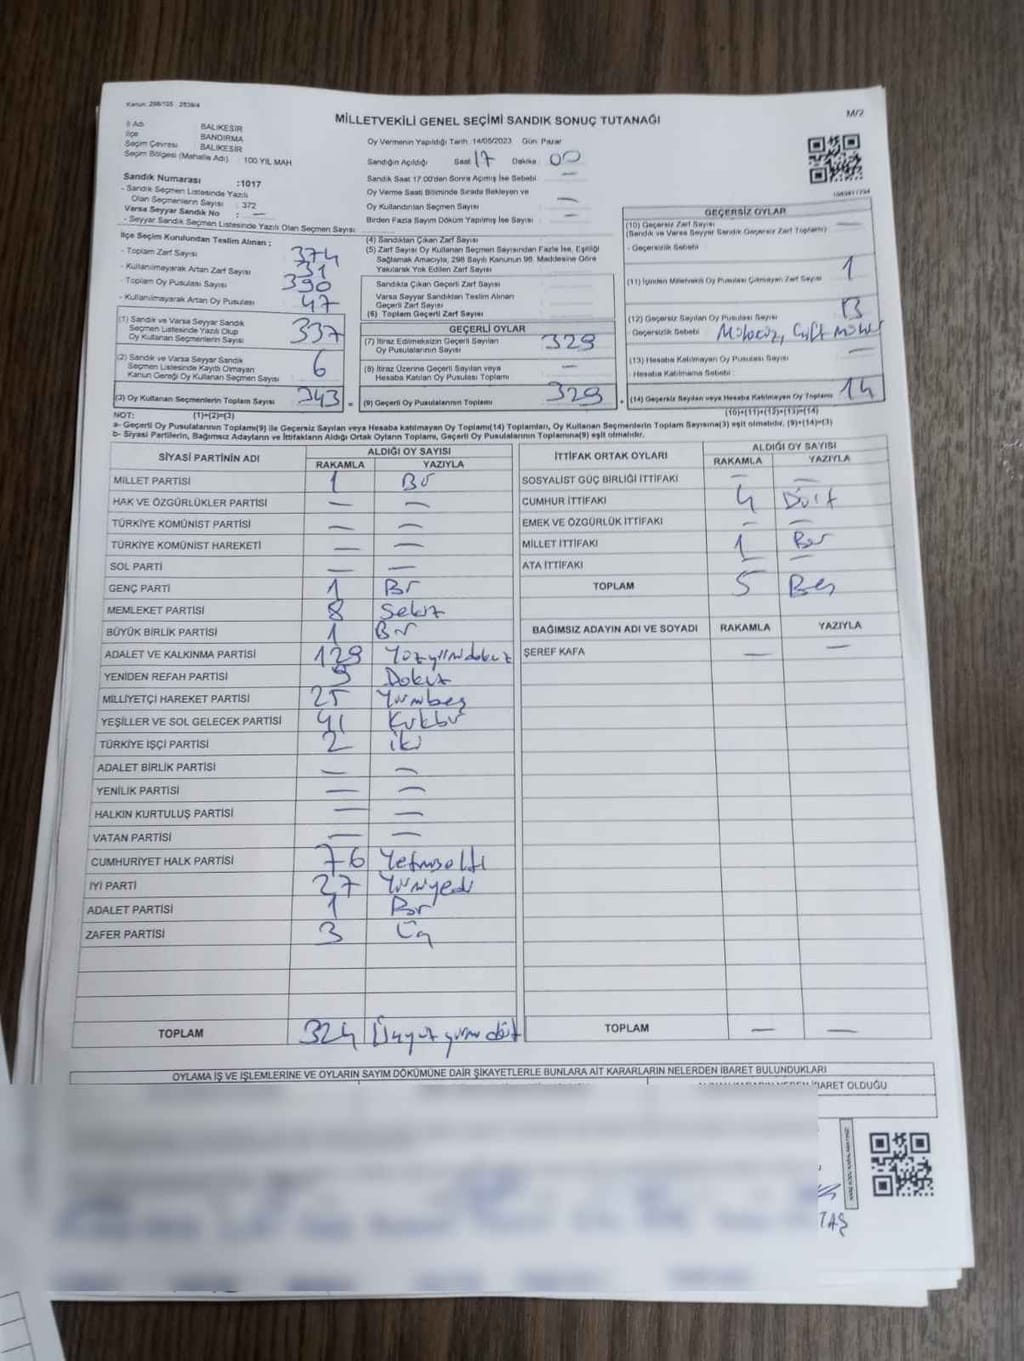 Kanun: 298/105 , 2839/4
MİLLETVEKİLİ GENEL SEÇİMİ SANDIK SONUÇ TUTANAĞI
M/2
İl Adı BALIKESİR
İlçe BANDIRMA
Seçim Çevresi BALIKESİR
Seçim Bölgesi (Mahalle Adı) 100 YIL MAH
Oy Vermenin Yapıldığı Tarih :14/05/2023 Gün: Pazar
Sandığın Açıldığı Saat 17 Dakika 00
Sandık Saat 17.00'den Sonra Açılmış İse Sebebi —
Oy Verme Saati Bitiminde Sırada Bekleyen ve
Oy Kullandırılan Seçmen Sayısı —
Birden Fazla Sayım Döküm Yapılmış İse Sayısı —
Sandık Numarası :1017
- Sandık Seçmen Listesinde Yazılı
Olan Seçmenlerin Sayısı : 372
Varsa Seyyar Sandık No : —
- Seyyar Sandık Seçmen Listesinde Yazılı Olan Seçmen Sayısı :
İlçe Seçim Kurulundan Teslim Alınan ;
- Toplam Zarf Sayısı 374
- Kullanılmayarak Artan Zarf Sayısı 31
- Toplam Oy Pusulası Sayısı 390
- Kullanılmayarak Artan Oy Pusulası 47
(1) Sandık ve Varsa Seyyar Sandık
Seçmen Listesinde Yazılı Olup
Oy Kullanan Seçmenlerin Sayısı 337
(2) Sandık ve Varsa Seyyar Sandık
Seçmen Listesinde Kayıtlı Olmayan
Kanun Gereği Oy Kullanan Seçmen Sayısı 6
(3) Oy Kullanan Seçmenlerin Toplam Sayısı 343
(4) Sandıktan Çıkan Zarf Sayısı
(5) Zarf Sayısı Oy Kullanan Seçmen Sayısından Fazla İse, Eşitliği
Sağlamak Amacıyla, 298 Sayılı Kanunun 98. Maddesine Göre
Yakılarak Yok Edilen Zarf Sayısı
Sandıkta Çıkan Geçerli Zarf Sayısı
Varsa Seyyar Sandıktan Teslim Alınan
Geçerli Zarf Sayısı
(6) Toplam Geçerli Zarf Sayısı
GEÇERLİ OYLAR
(7) İtiraz Edilmeksizin Geçerli Sayılan
Oy Pusulalarının Sayısı 329
(8) İtiraz Üzerine Geçerli Sayılan veya
Hesaba Katılan Oy Pusulası Toplamı —
= (9) Geçerli Oy Pusulalarının Toplamı 329
GEÇERSİZ OYLAR
(10) Geçersiz Zarf Sayısı
(Sandık ve Varsa Seyyar Sandık Geçersiz Zarf Toplamı) —
- Geçersizlik Sebebi
(11) İçinden Milletvekili Oy Pusulası Çıkmayan Zarf Sayısı 1
(12) Geçersiz Sayılan Oy Pusulası Sayısı 13
- Geçersizlik Sebebi : Mühürsüz, Çift mühür
(13) Hesaba Katılmayan Oy Pusulası Sayısı —
- Hesaba Katılmama Sebebi :
+ (14) Geçersiz Sayılan veya Hesaba Katılmayan Oy Toplamı 14
NOT: (1)+(2)=(3) (10)+(11)+(12)+(13)=(14)
a- Geçerli Oy Pusulalarının Toplamı(9) ile Geçersiz Sayılan veya Hesaba katılmayan Oy Toplamı(14) Toplamları, Oy Kullanan Seçmenlerin Toplam Sayısına(3) eşit olmalıdır. (9)+(14)=(3)
b- Siyasi Partilerin, Bağımsız Adayların ve İttifakların Aldığı Ortak Oyların Toplamı, Geçerli Oy Pusulalarının Toplamına(9) eşit olmalıdır.
SİYASİ PARTİNİN ADI ALDIĞI OY SAYISI
RAKAMLA YAZIYLA
MİLLET PARTİSİ 1 Bir
HAK VE ÖZGÜRLÜKLER PARTİSİ — —
TÜRKİYE KOMÜNİST PARTİSİ — —
TÜRKİYE KOMÜNİST HAREKETİ — —
SOL PARTİ — —
GENÇ PARTİ 1 Bir
MEMLEKET PARTİSİ 8 Sekiz
BÜYÜK BİRLİK PARTİSİ 1 Bir
ADALET VE KALKINMA PARTİSİ 129 Yüzyirmidokuz
YENİDEN REFAH PARTİSİ 9 Dokuz
MİLLİYETÇİ HAREKET PARTİSİ 25 Yirmibeş
YEŞİLLER VE SOL GELECEK PARTİSİ 41 Kırkbir
TÜRKİYE İŞÇİ PARTİSİ 2 İki
ADALET BİRLİK PARTİSİ — —
YENİLİK PARTİSİ — —
HALKIN KURTULUŞ PARTİSİ — —
VATAN PARTİSİ — —
CUMHURİYET HALK PARTİSİ 76 Yetmişaltı
İYİ PARTİ 27 Yirmiyedi
ADALET PARTİSİ 1 Bir
ZAFER PARTİSİ 3 Üç
TOPLAM 324 Üçyüz yirmi dört
İTTİFAK ORTAK OYLARI ALDIĞI OY SAYISI
RAKAMLA YAZIYLA
SOSYALİST GÜÇ BİRLİĞİ İTTİFAKI — —
CUMHUR İTTİFAKI 4 Dört
EMEK VE ÖZGÜRLÜK İTTİFAKI — —
MİLLET İTTİFAKI 1 Bir
ATA İTTİFAKI — —
TOPLAM 5 Beş
BAĞIMSIZ ADAYIN ADI VE SOYADI RAKAMLA YAZIYLA
ŞEREF KAFA — —
TOPLAM — —
OYLAMA İŞ VE İŞLEMLERİNE VE OYLARIN SAYIM DÖKÜMÜNE DAİR ŞİKAYETLERLE BUNLARA AİT KARARLARIN NELERDEN İBARET BULUNDUKLARI
İBARET OLDUĞU
TAŞ